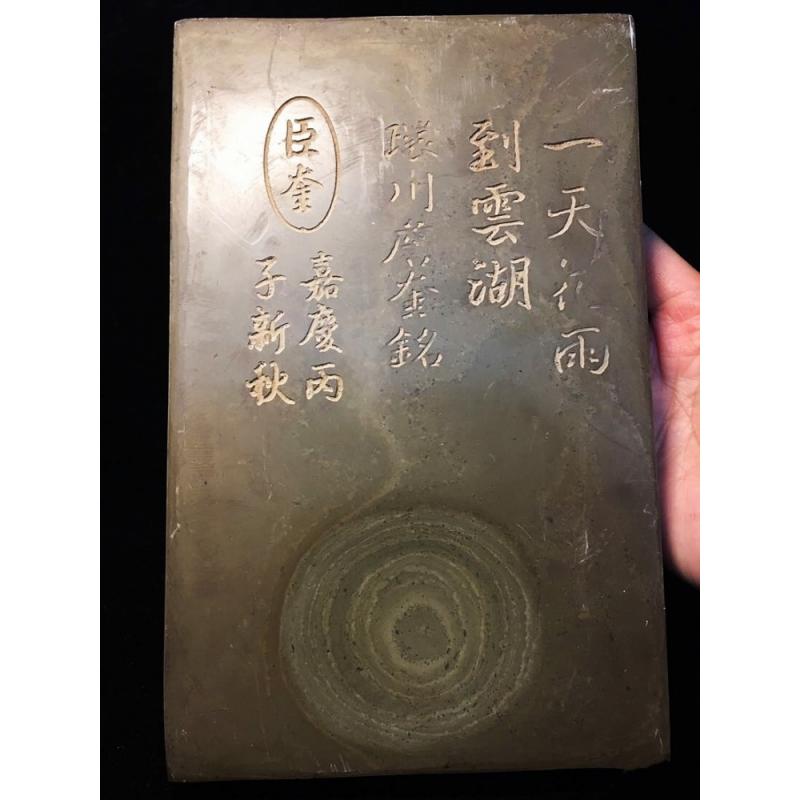 一天花雨
到雲湖
川銘
嘉慶丙
子新秋
臣奎